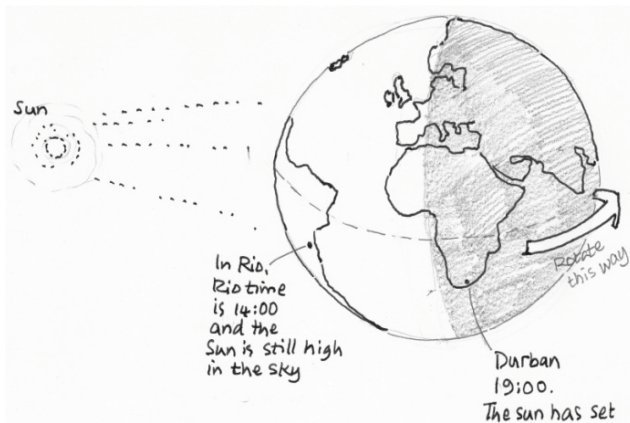 Sun
In Rio,
Rio time
is 14:00
and the
Sun is still high
in the sky
Rotate
this way
Durban
19:00.
The sun has set